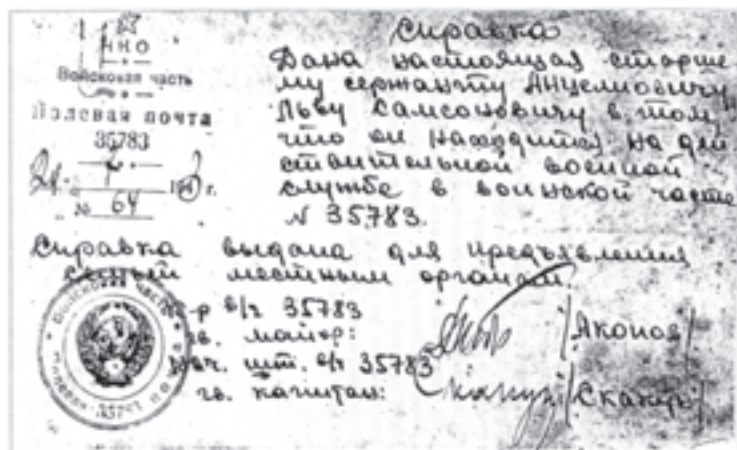 НКО
Войсковая часть
Полевая почта
35783
194 г.
№ 64
Справка
Дана настоящая старше-
му сержанту Анцеловичу
Льву Самсоновичу в том,
что он находится на дей
ствительной военной
службе в воинской части
№ 35783.
Справка выдана для предъявления
семьей местным органам.
к-р в/ч 35783
гв. майор:
/Акопов/
нач. шт. в/ч 35783
гв. капитан:
Войсковая часть